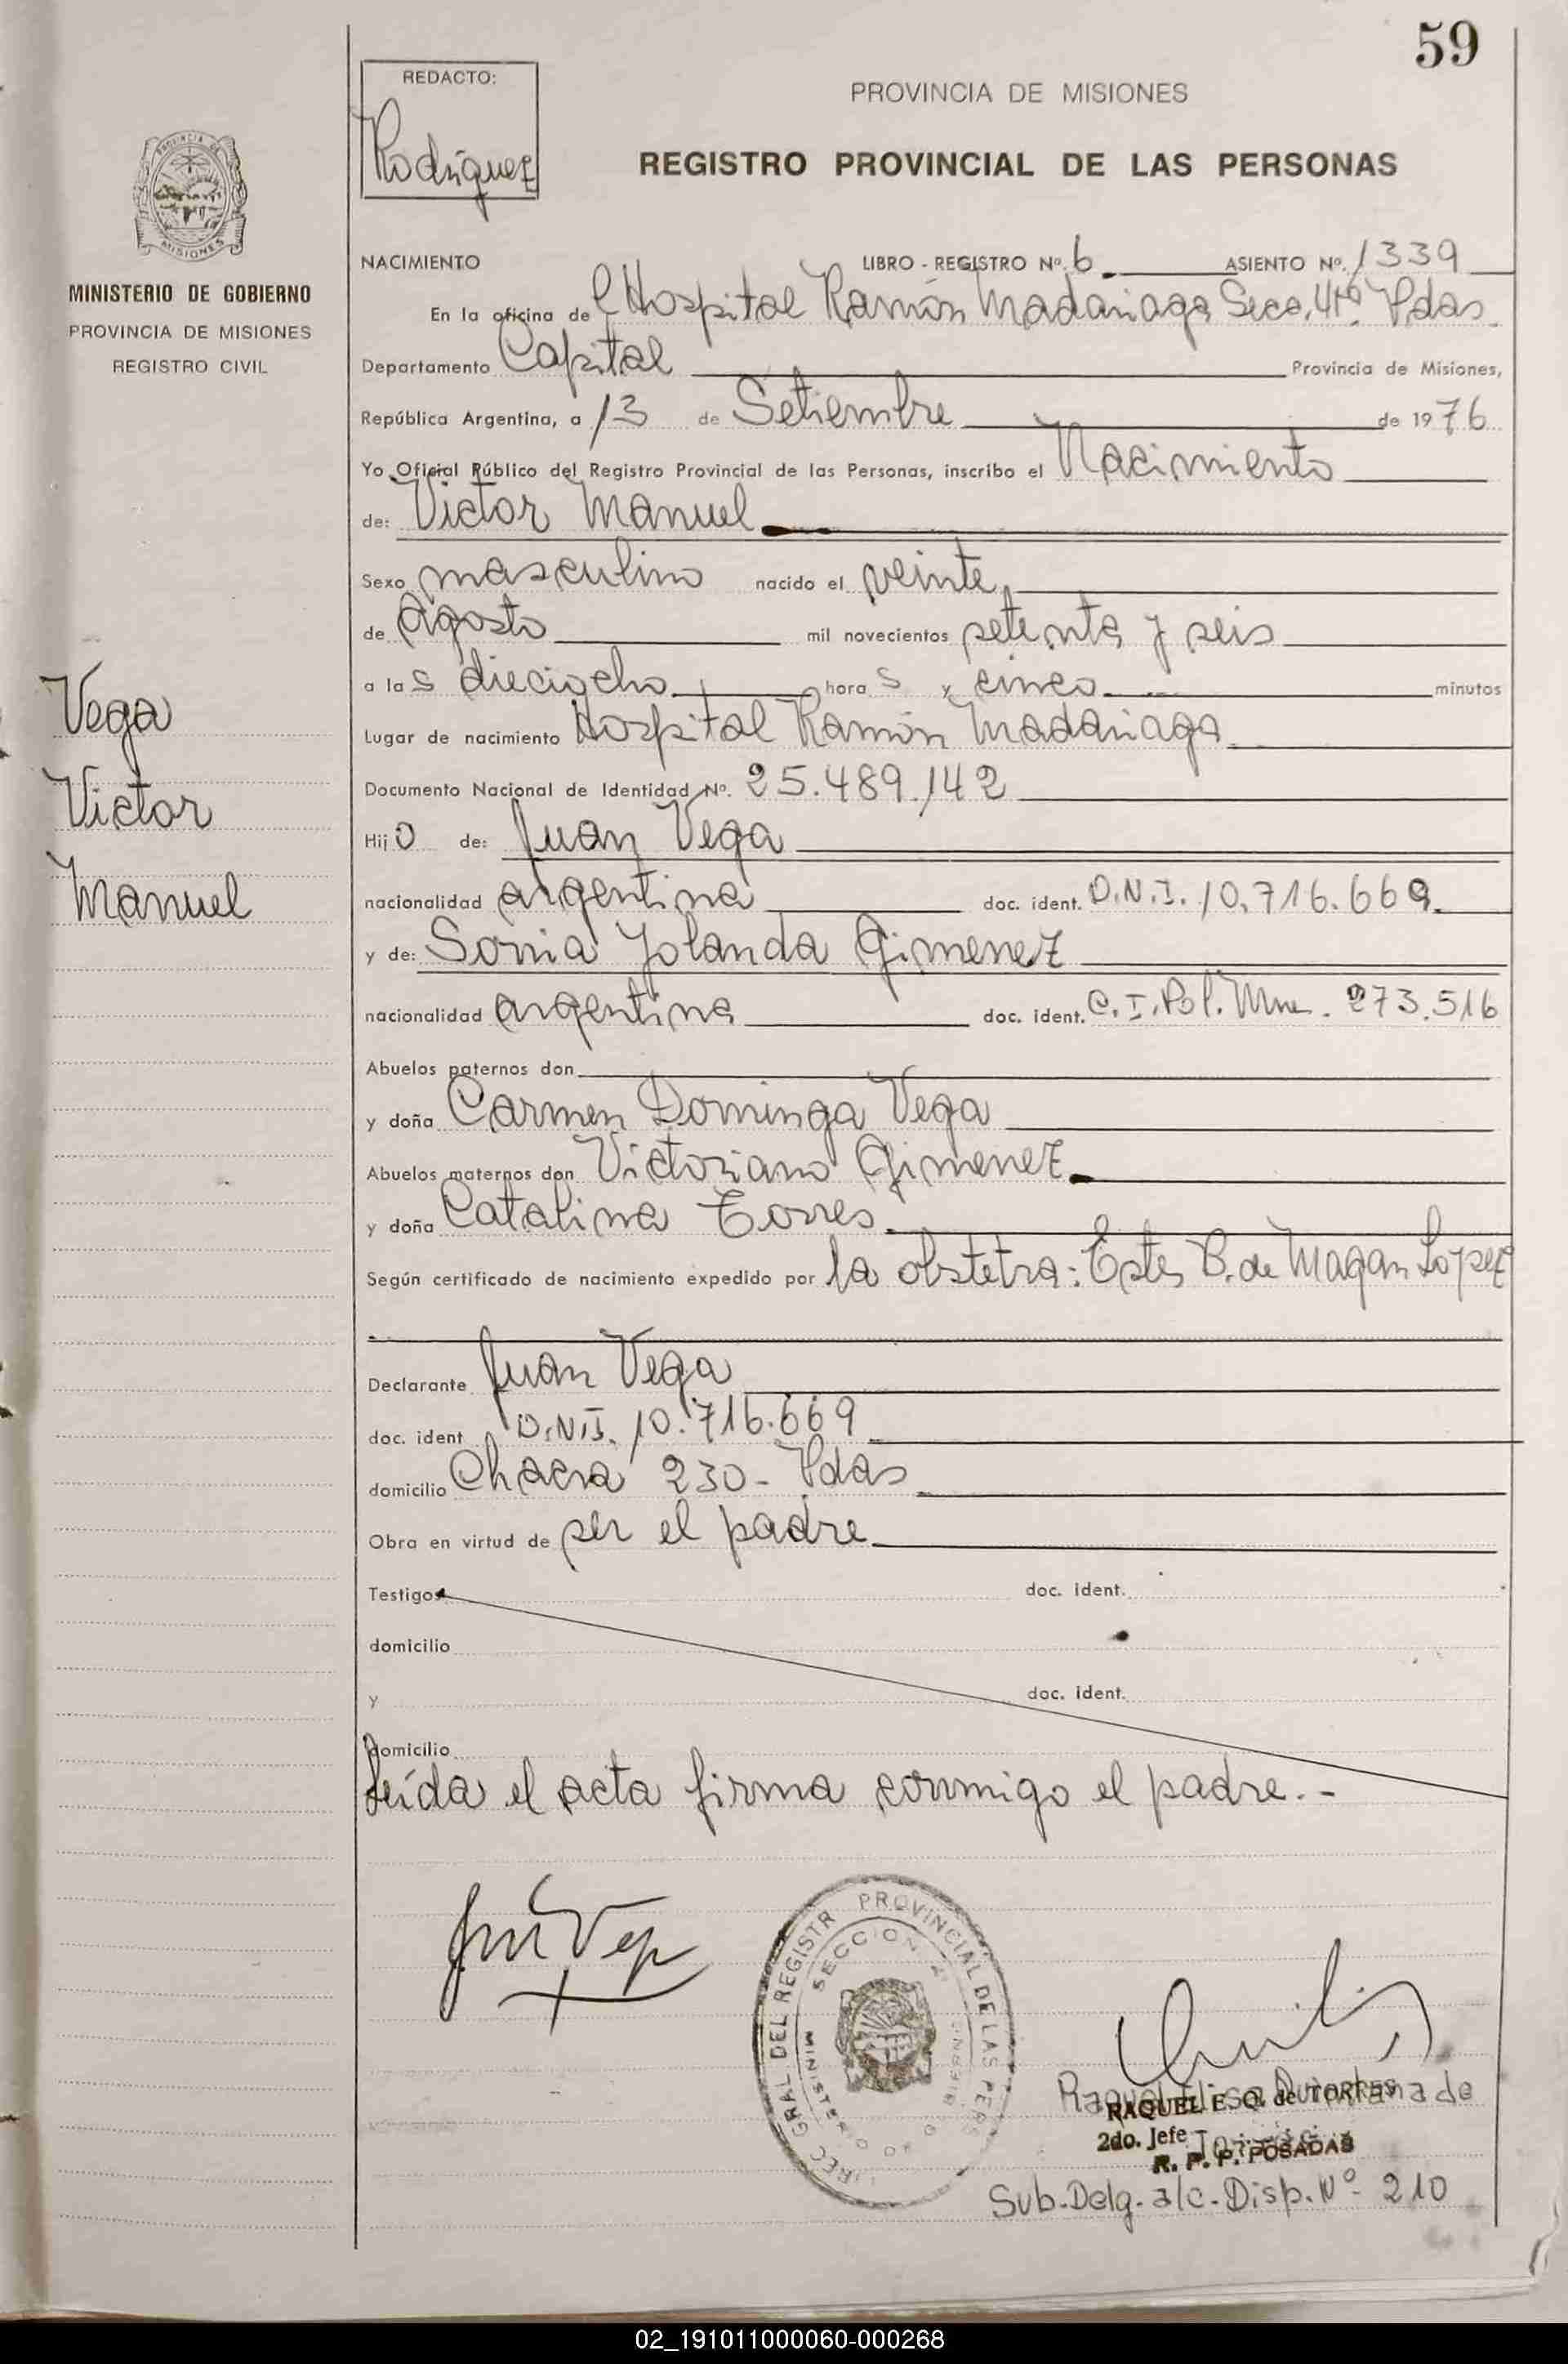 59
REDACTO:
Rodriguez
PROVINCIA DE MISIONES
REGISTRO PROVINCIAL DE LAS PERSONAS
MINISTERIO DE GOBIERNO
PROVINCIA DE MISIONES
REGISTRO CIVIL
NACIMIENTO LIBRO - REGISTRO Nº 6 ASIENTO Nº. 1339
En la oficina del Hospital Ramón Madariaga Secc. 4ta. Pdas.
Departamento Capital Provincia de Misiones,
República Argentina, a 13 de Setiembre de 1976
Yo Oficial Público del Registro Provincial de las Personas, inscribo el Nacimiento
de: Victor Manuel
Sexo masculino nacido el veinte
de Agosto mil novecientos setenta y seis
a las dieciocho horas y cinco minutos
Lugar de nacimiento Hospital Ramón Madariaga
Documento Nacional de Identidad Nº. 25.489.142
Hijo de: Juan Vega
nacionalidad argentina doc. ident. D.N.I. 10.716.669.
y de: Sonia Yolanda Gimenez
nacionalidad argentina doc. ident. C.I. Pol. Mnes. 273.516
Abuelos paternos don
y doña Carmen Dominga Vega
Abuelos maternos don Victoriano Gimenez
y doña Catalina Torres
Según certificado de nacimiento expedido por la obstetra: B. de Magan Lopez
Declarante Juan Vega
doc. ident. D.N.I. 10.716.669
domicilio Chacra 230 - Pdas
Obra en virtud de ser el padre
Testigos doc. ident.
domicilio
y doc. ident.
domicilio
Leída el acta firma conmigo el padre.-
Vega
Victor
Manuel
Juan Vega
PROVINCIAL DE LAS PERS
GRAL DEL REGISTR
SECCION
MINISTER
RAQUEL E. Q. de TORRES
2do. Jefe
R. P. P. POSADAS
Sub-Delg. a/c. Disp. Nº 210
02_191011000060-000268